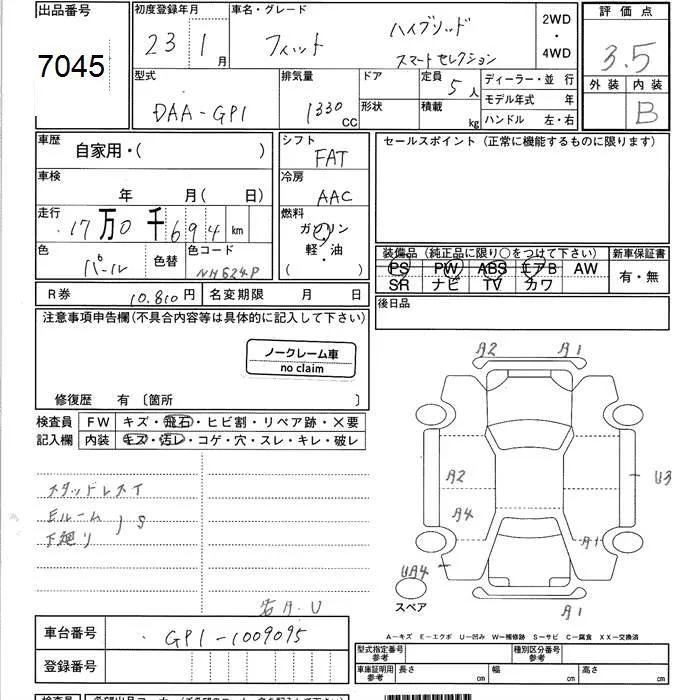 出品番号 7045
初度登録年月 23 1月
車名・グレード フィット ハイブリッド スマートセレクション
2WD・4WD
評価点 3.5
外装 内装 B
型式 DAA-GP1
排気量 1330 CC
ドア
形状
定員 5人
積載 kg
ディーラー・並 行
モデル年式 年
ハンドル 左・右
車歴 自家用・( )
シフト FAT
セールスポイント(正常に機能するものに限ります)
車検 年 月( 日)
冷房 AAC
走行 17万0千694 km
燃料 ガソリン 軽・油 ( )
色 パール 色替 色コード NH624P
装備品(純正品に限り○をつけて下さい)
PS PW ABS エアB AW
SR ナビ TV カワ
新車保証書 有・無
R券 10.810円 名変期限 月 日
後日品
注意事項申告欄(不具合内容等は具体的に記入して下さい)
ノークレーム車
no claim
修復歴 有 〔箇所 〕
検査員記入欄
FW キズ・飛石・ヒビ割・リペア跡・×要
内装 キズ・汚レ・コゲ・穴・スレ・キレ・破レ
スタッドレスT
Eルーム
下廻り
S
A2 A1
A2 U3
A4
A1
UA4
スペア
A1
A-キズ E-エクボ U-凹み W-補修跡 S-サビ C-腐食 XX-交換済
車台番号 GP1-1009095
登録番号
型式指定番号 参考
種別区分番号 参考
車庫証明用 参考 長さ cm 幅 cm 高さ cm